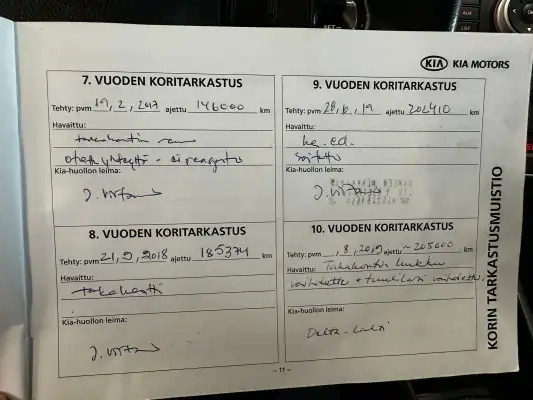 KIA KIA MOTORS
7. VUODEN KORITARKASTUS
Tehty: pvm 19, 2, 2017 ajettu 146000 km
Havaittu:
takakontin
otettu yhteyttä -
Kia-huollon leima:
J. Virtanen
8. VUODEN KORITARKASTUS
Tehty: pvm 21, 9, 2018 ajettu 185374 km
Havaittu:
takakontti
Kia-huollon leima:
J. Virtanen
9. VUODEN KORITARKASTUS
Tehty: pvm 28, 6, 19 ajettu 202410 km
Havaittu:
ke. ed.
Kia-huollon leima:
J. Virtanen
10. VUODEN KORITARKASTUS
Tehty: pvm , 8, 2019 ajettu ~205000 km
Havaittu: Takakontin luukku
vaihdettu + tuulilasi vaihdettu.
Kia-huollon leima:
Delta-
KORIN TARKASTUSMUISTIO
– 11 –